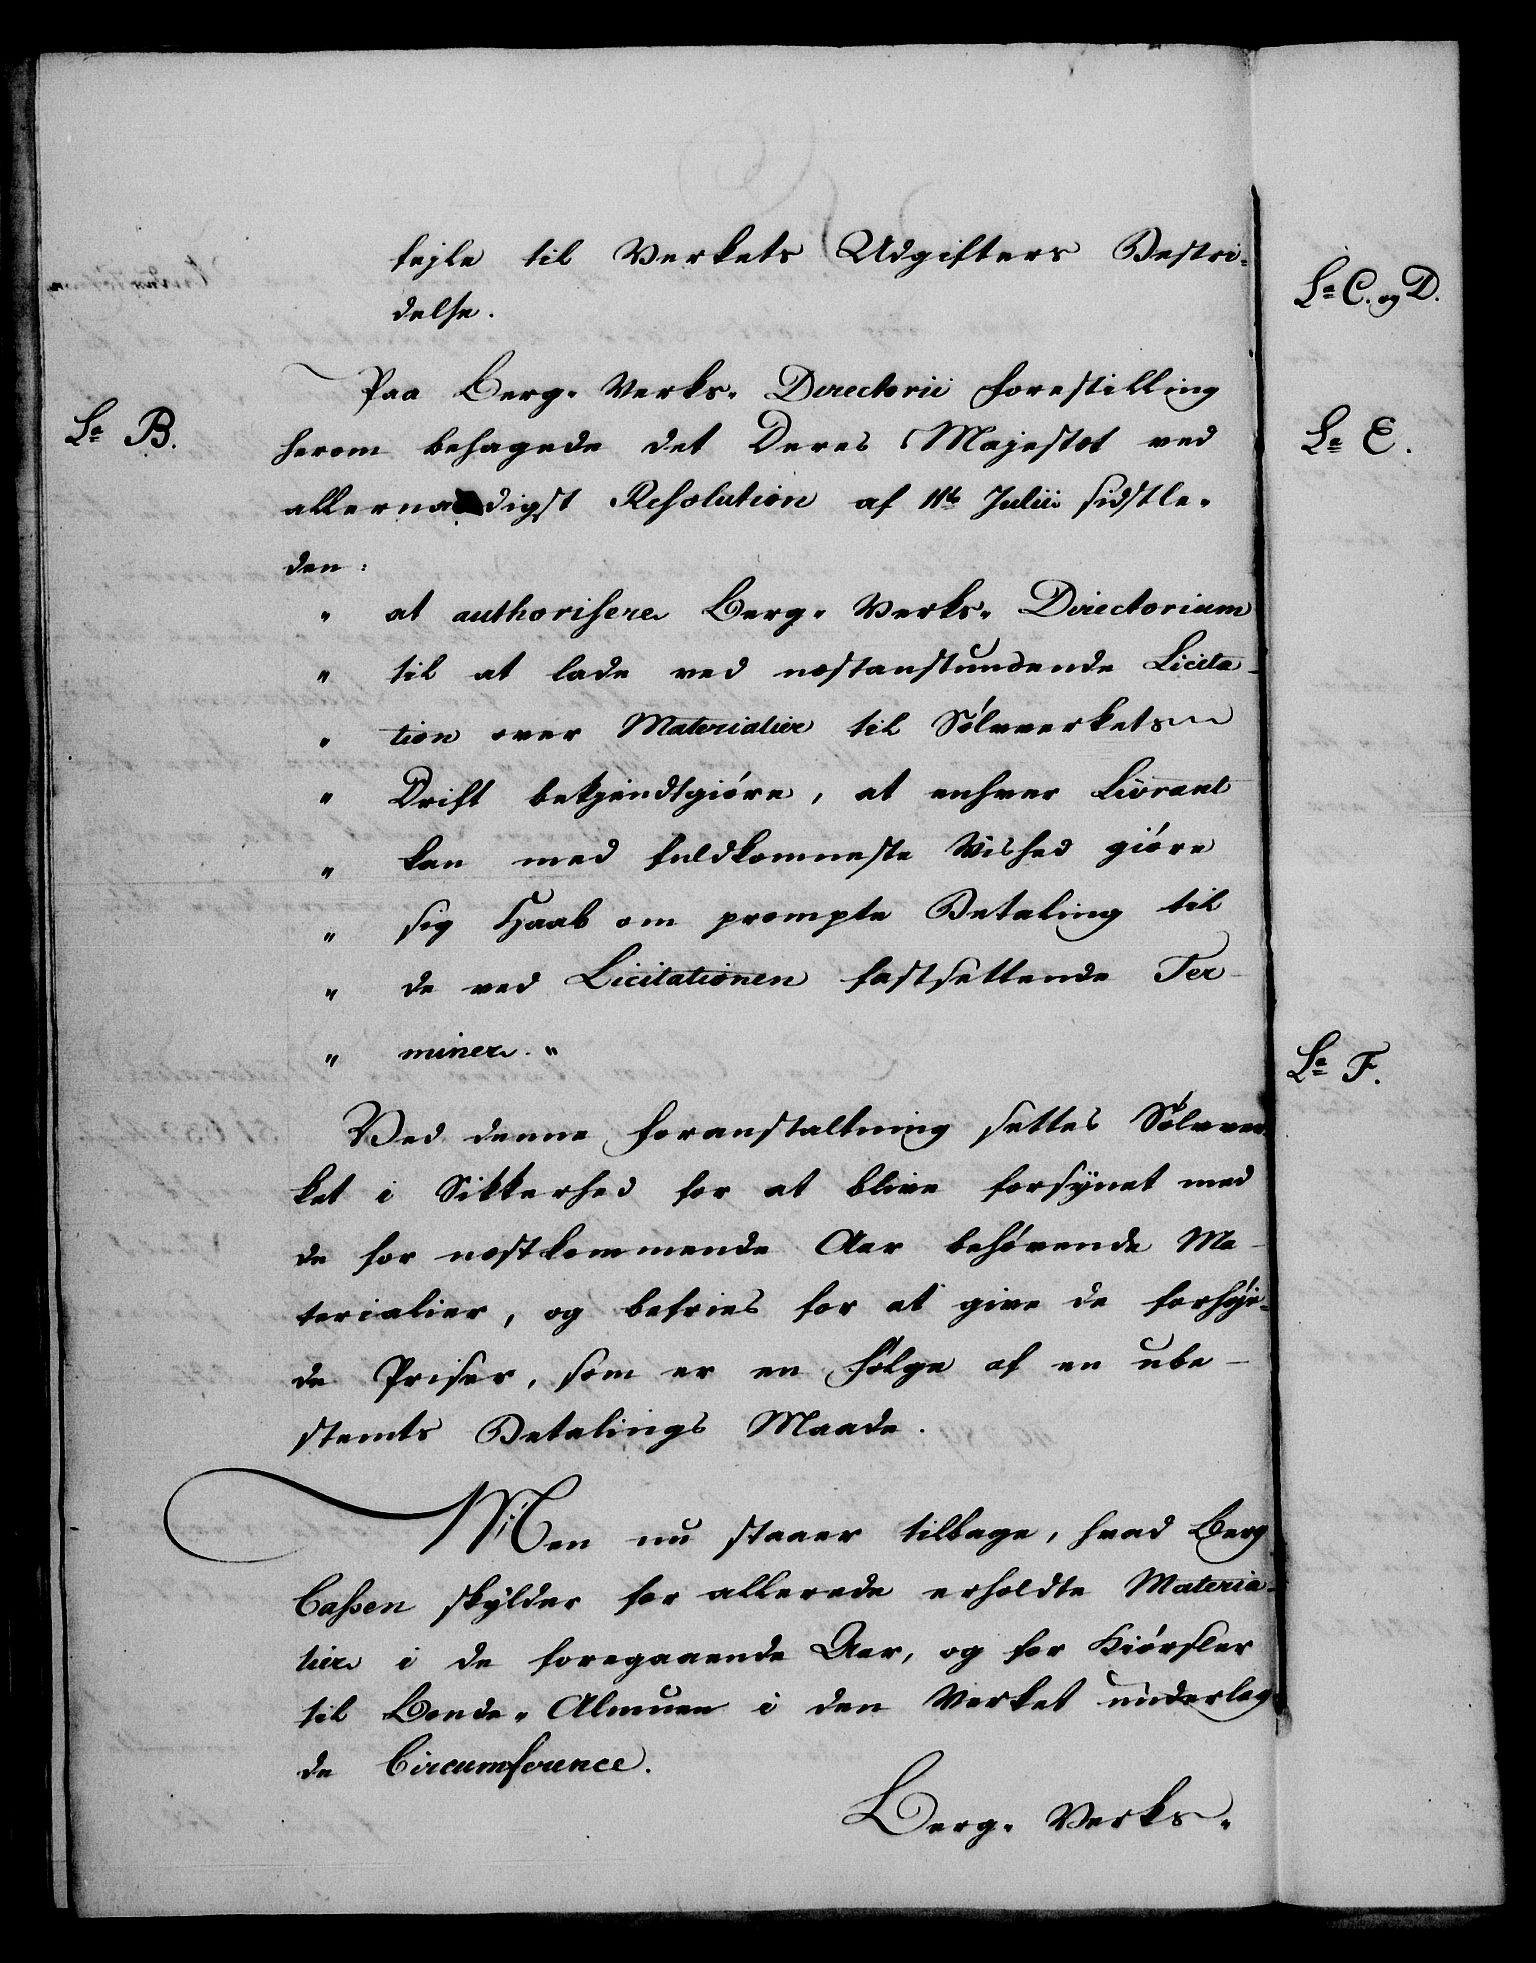 fejle til Verkets Udgifters Bestri-
delse.
Paa Berg-Verks-Directorii Forestilling
Lra B.
herom behagede det Deres Majestæt ved
allernaadigst Resolution af 11te Julii sidstle-
den:
" at authorisere Berg-Verks-Directorium
" til at lade ved næstanstundende Licita-
" tion over Materialier til Sølvverkets
" Drift bekjendtgiøre, at enhver Liverant
" kan med fuldkomneste Vished giøre
" sig Haab om prompte Betaling til
" de ved Licitationen fastsettende Ter-
" miner."
Ved denne Foranstaltning settes Sølvver-
ket i Sikkerhed for at blive forsÿnet med
de for næstkommende Aar behøvende Ma-
terialier, og befries for at give de forhøie-
de Priser, som er en Følge af en ube-
stemts Betalings Maade.
Men nu staaer tilbage, hvad Berg
Cassen skÿlder for allerede erholdte Materia-
lier i de foregaaende Aar, og for Kiørsler
til Bonde-Almuen i den Verket underlag-
de Circumference.
Berg-Verks-
Lra C. og D.
Lra E.
Lra F.